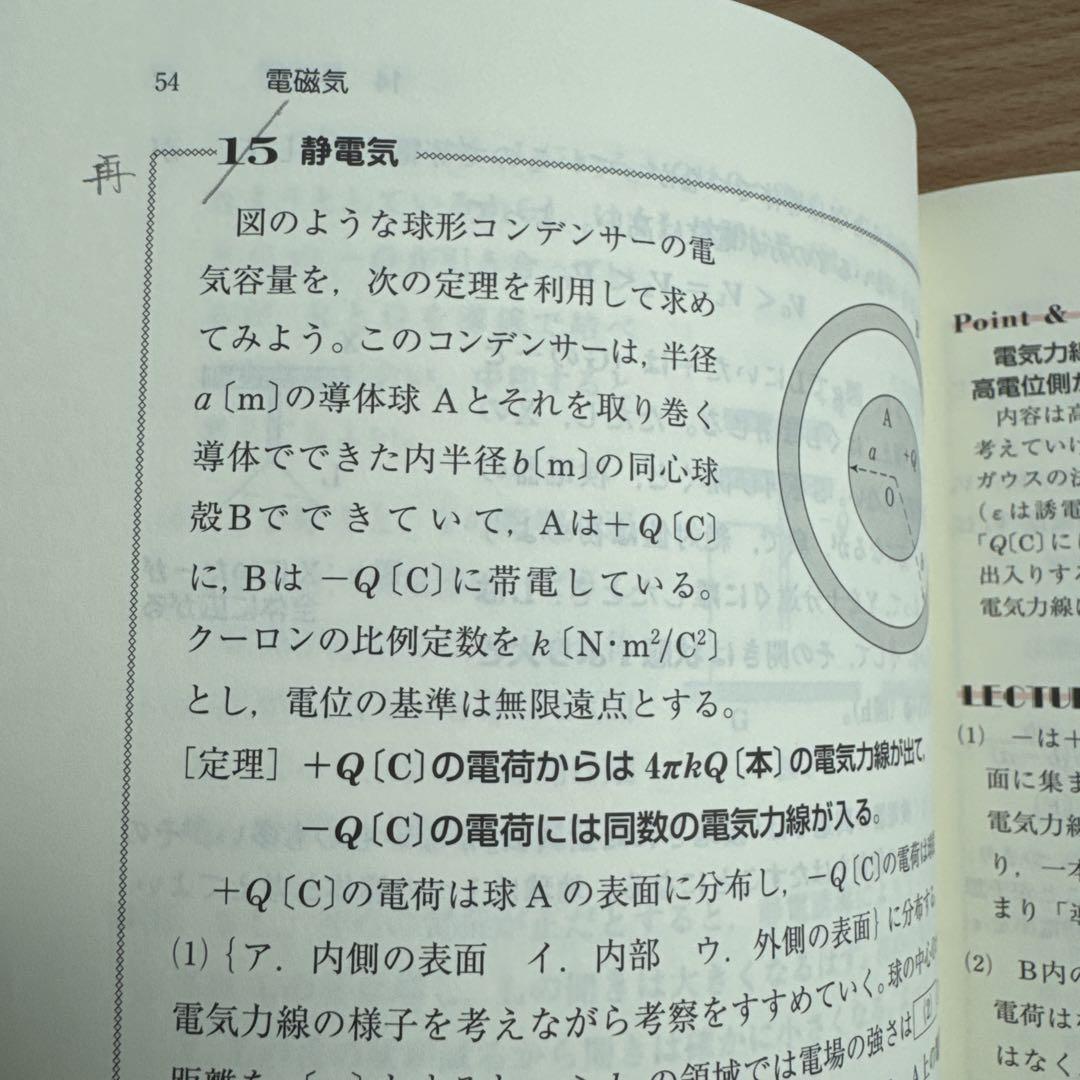 54 電磁気
再
15 静電気
図のような球形コンデンサーの電
気容量を，次の定理を利用して求め
てみよう。このコンデンサーは，半径
a〔m〕の導体球 Aとそれを取り巻く
導体でできた内半径b〔m〕の同心球
殻Bでできていて，Aは+Q〔C〕
に，Bは −Q〔C〕に帯電している。
クーロンの比例定数を k〔N·m²/C²〕
とし，電位の基準は無限遠点とする。
［定理］ +Q〔C〕の電荷からは 4πkQ〔本〕の電気力線が出て，
−Q〔C〕の電荷には同数の電気力線が入る。
+Q〔C〕の電荷は球 A の表面に分布し，−Q〔C〕の電荷は
(1) {ア．内側の表面 イ．内部 ウ．外側の表面} に分布する
電気力線の様子を考えながら考察をすすめていく。球の中心
の領域では電場の強さは (2)
A
a
+Q
O
Point &
電気力線
高電位側
内容は高
考えてい
ガウスの法
(εは誘電
「Q〔C〕に
出入りする
電気力線
LECTU
(1) −は+
面に集ま
電気力線
り，一本
まり「導
(2) B内の
電荷は
はなく